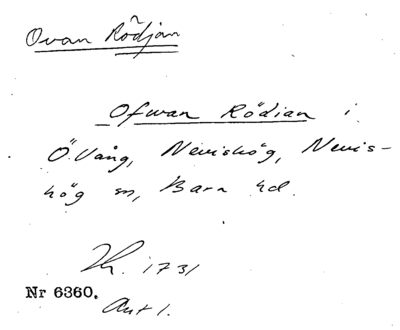 Ovan Rödjan
Ofwan Rödian i
Ö. Vång, Nevishög, Nevis-
hög sn, Bara hd.
Lh. 1731
Nr 6360.
Ant 1.